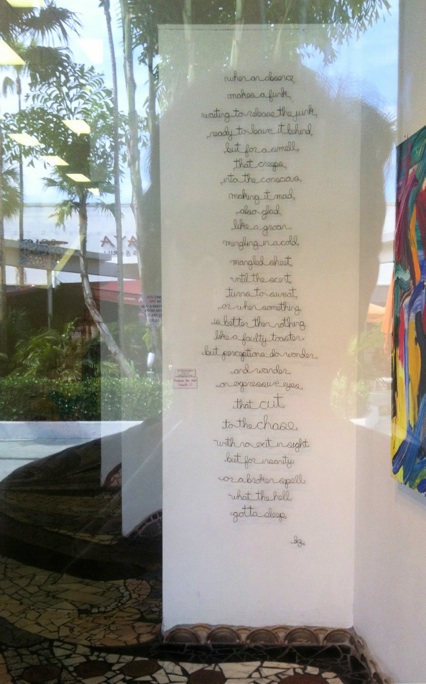 when an absence
makes a funk,
waiting to release the junk,
ready to leave it behind
but for a smell,
that creeps,
into the conscious
making it mad,
also glad
like a groan
mingling in a cold
mangled chest,
until the scent,
turns to sweat,
or when something,
is better than nothing,
like a faulty toaster
but perceptions do wonder
and wander
on expressive eyes,
that cut
to the chase
with no exit in sight
but for insanity
or a broken spell
what the hell
gotta sleep